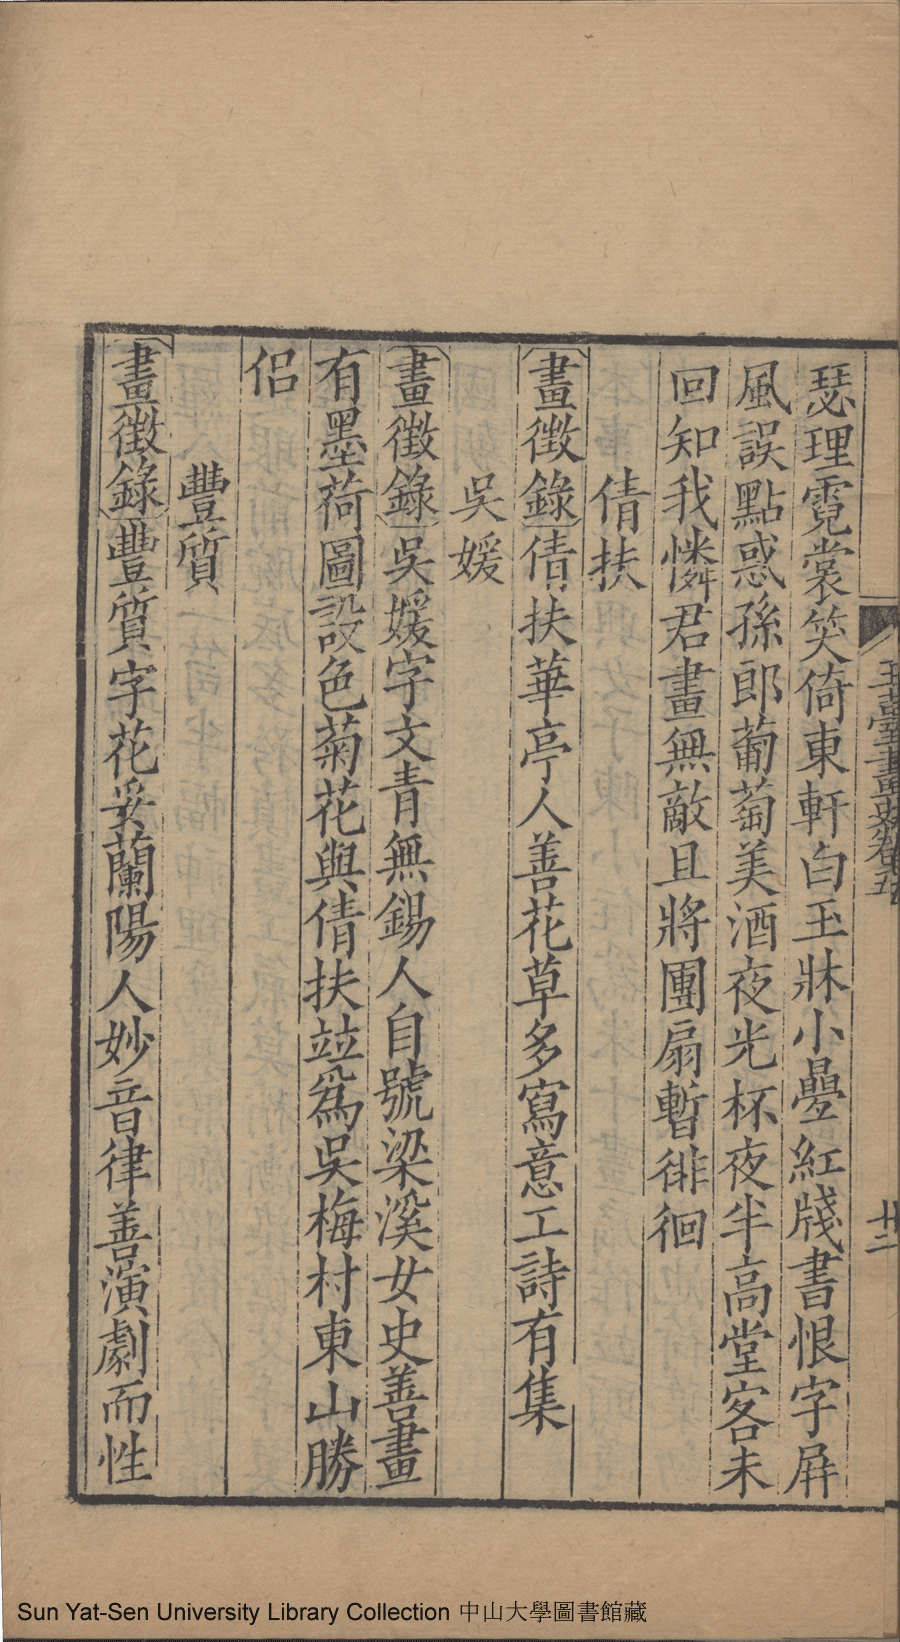 玉臺畫史卷五
廿二
瑟理霓裳笑倚東軒白玉牀小疊紅牋書恨字屛
風誤點惑孫郎葡萄美酒夜光杯夜半高堂客未
回知我憐君畫無敵且將團扇暫徘徊
倩扶
畫徵錄倩扶華亭人善花草多寫意工詩有集
吳媛
畫徵錄吳媛字文青無錫人自號梁溪女史善畫
有墨荷圖設色菊花與倩扶竝爲吳梅村東山勝
侣
豐質
畫徵錄豐質字花妥蘭陽人妙音律善演劇而性
Sun Yat-Sen University Library Collection 中山大學圖書館藏